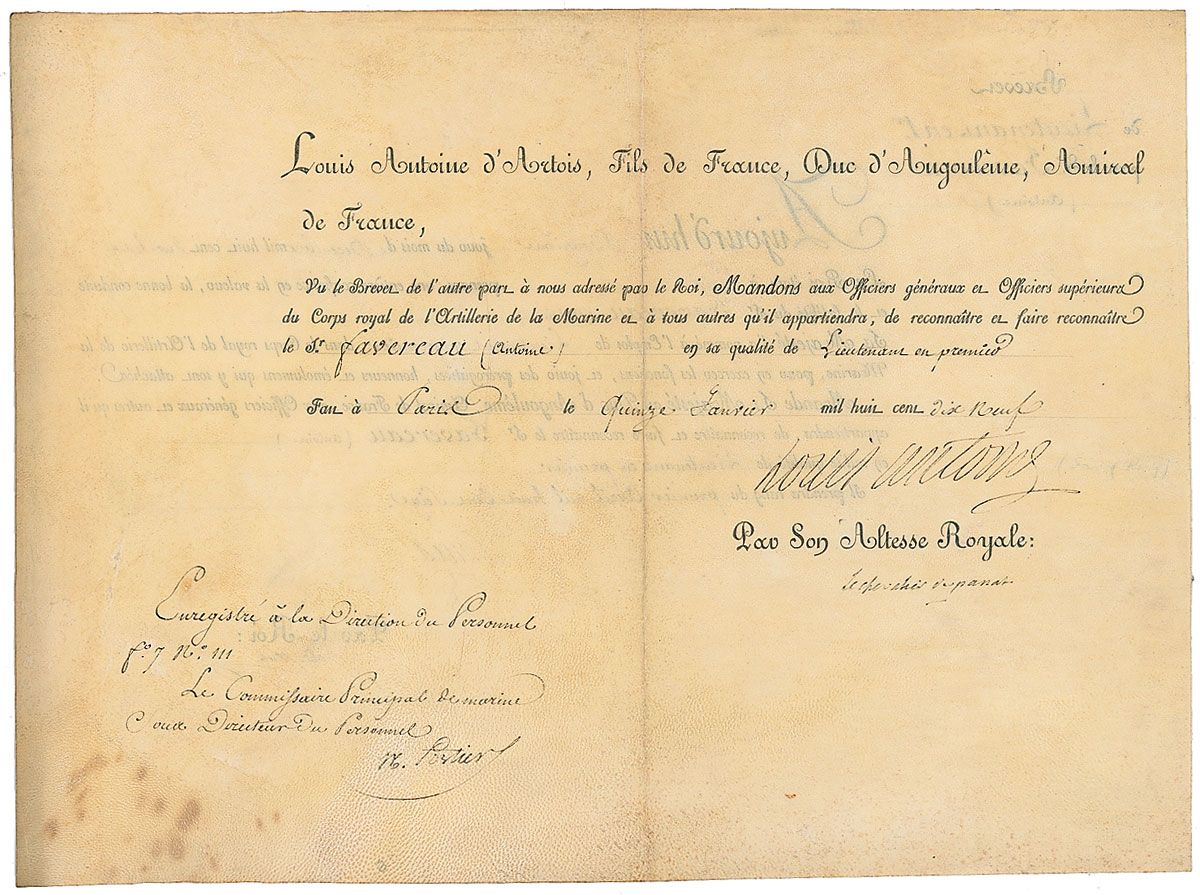 Louis Antoine d'Artois, Fils de France, Duc d'Angoulême, Amiral
de France,
Vu le Brevet de l'autre part à nous adressé par le Roi, Mandons aux Officiers généraux et Officiers supérieurs
du Corps royal de l'Artillerie de la Marine et à tous autres qu'il appartiendra, de reconnaître et faire reconnaître
le Sr. favereau (Antoine) en sa qualité de Lieutenant en premier
Fait à Paris le Quinze Janvier mil huit cent dix Neuf
Louis Antoine
Par Son Altesse Royale:
Le chevalier de panat
Enregistré à la Direction du Personnel
fo. 7 No. 111
Le Commissaire Principal de marine
Directeur du Personnel